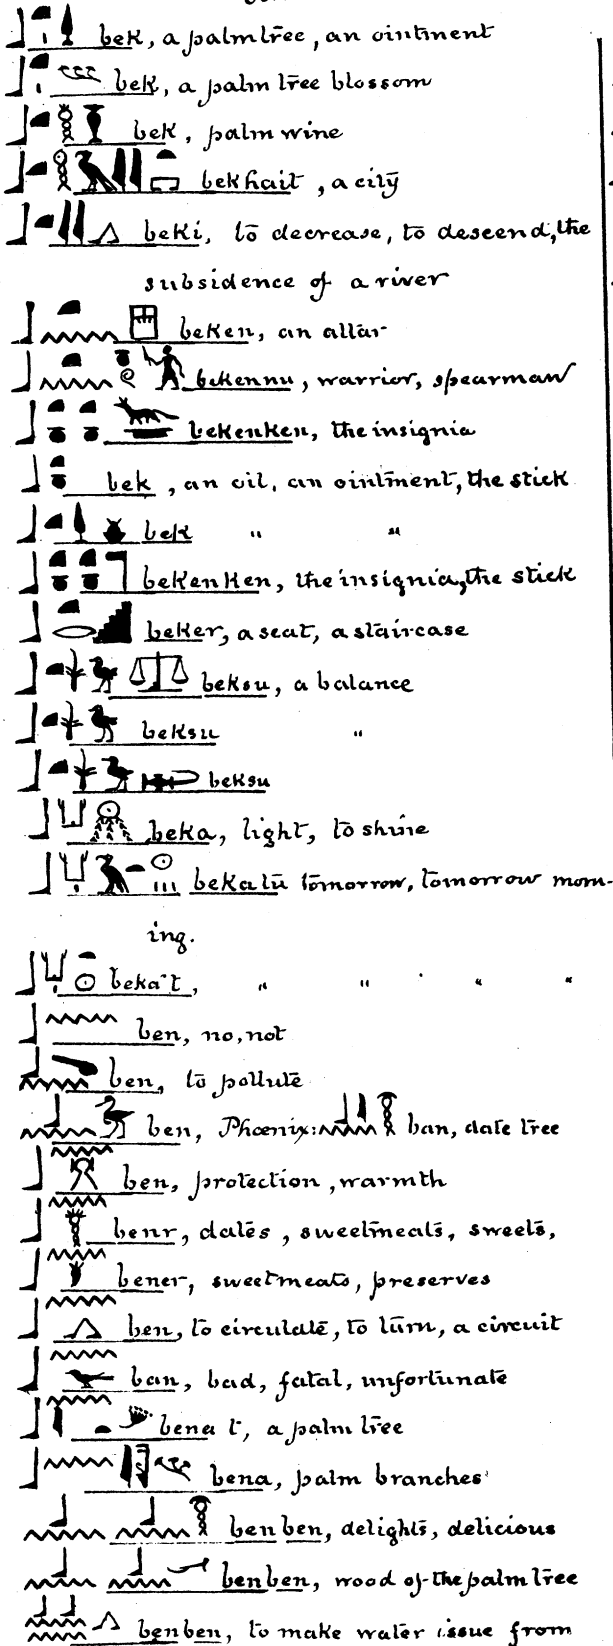 bek, a palm tree, an ointment
bek, a palm tree blossom
bek, palm wine
bekhait, a city
beki, to decrease, to descend, the
subsidence of a river
beken, an altar
bekennu, warrior, spearman
bekenken, the insignia
bek, an oil, an ointment, the stick
bek " "
bekenken, the insignia, the stick
beker, a seat, a staircase
beksu, a balance
beksu "
beksu
beka, light, to shine
bekatu tomorrow, tomorrow morn-
ing.
beka t, " " " "
ben, no, not
ben, to pollute
ben, Phœnix: ban, date tree
ben, protection, warmth
benr, dates, sweetmeats, sweets,
bener, sweetmeats, preserves
ben, to circulate, to turn, a circuit
ban, bad, fatal, unfortunate
bena t, a palm tree
bena, palm branches
benben, delights, delicious
benben, wood of the palm tree
benben, to make water issue from